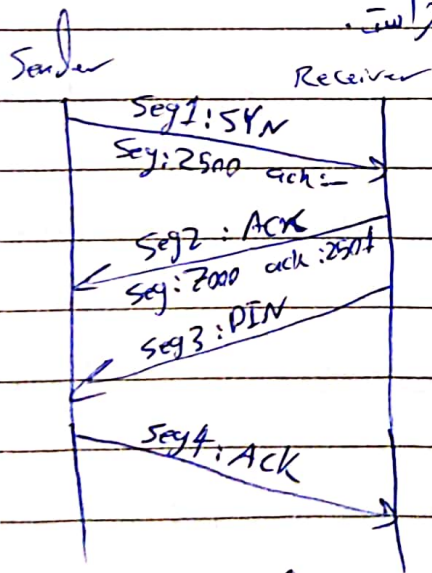 Sender
Receiver
Seg1: SYN
Seq: 2500 ack: _
Seg2 : ACK
Seq: 7000 ack: 2501
Seg3: PIN
Seg4: ACK